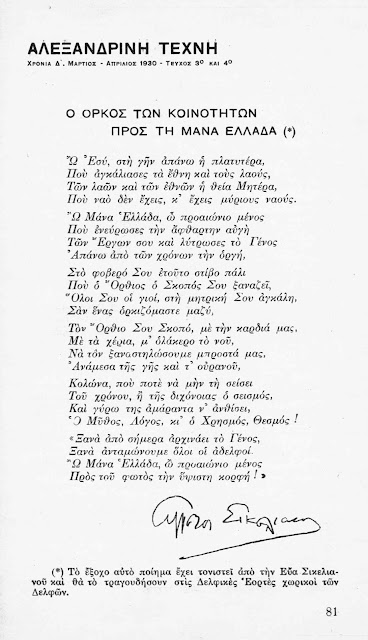 ΑΛΕΞΑΝΔΡΙΝΗ ΤΕΧΝΗ
ΧΡΟΝΙΑ Δ΄. ΜΑΡΤΙΟΣ - ΑΠΡΙΛΙΟΣ 1930 - ΤΕΥΧΟΣ 3ο ΚΑΙ 4ο
Ο ΟΡΚΟΣ ΤΩΝ ΚΟΙΝΟΤΗΤΩΝ
ΠΡΟΣ ΤΗ ΜΑΝΑ ΕΛΛΑΔΑ (*)
Ὢ Ἐσύ, στὴ γῆν ἀπάνω ἡ πλατυτέρα,
Ποὺ ἀγκάλιασες τὰ ἔθνη καὶ τοὺς λαούς,
Τῶν λαῶν καὶ τῶν ἐθνῶν ἡ θεία Μητέρα,
Ποὺ ναὸ δὲν ἔχεις, κ' ἔχεις μύριους ναούς.
Ὢ Μάνα Ἑλλάδα, ὦ προαιώνιο μένος
Ποὺ ἐνεύρωσες τὴν ἄφθαρτην αὐγὴ
Τῶν Ἔργων σου καὶ λύτρωσες τὸ Γένος
Ἀπάνω ἀπὸ τῶν χρόνων τὴν ὀργή,
Στὸ φοβερό Σου ἐτοῦτο στίβο πάλι
Ποὺ ὁ Ὄρθιος ὁ Σκοπός Σου ξαναζεῖ,
Ὅλοι Σου οἱ γιοί, στὴ μητρική Σου ἀγκάλη,
Σὰν ἕνας ὁρκιζόμαστε μαζύ,
Τὸν Ὄρθιο Σου Σκοπό, μὲ τὴν καρδιά μας,
Μὲ τὰ χέρια, μ' ὁλάκερο τὸ νοῦ,
Νὰ τὸν ξαναστηλώσουμε μπροστά μας,
Ἀνάμεσα τῆς γῆς καὶ τ' οὐρανοῦ,
Κολώνα, ποὺ ποτὲ νὰ μὴν τὴ σείσει
Τοῦ χρόνου, ἢ τῆς διχόνοιας ὁ σεισμός,
Καὶ γύρω της ἀμάραντα ν' ἀνθίσει,
Ὁ Μῦθος, Λόγος, κι' ὁ Χρησμός, Θεσμός !
«Ξανὰ ἀπὸ σήμερα ἀρχινάει τὸ Γένος,
Ξανὰ ἀνταμώνουμε ὅλοι οἱ ἀδελφοί.
Ὢ Μάνα Ἑλλάδα, ὦ προαιώνιο μένος
Πρὸς τοῦ φωτὸς τὴν ὕψιστη κορφή ! »
Ἄγγελος Σικελιανός
(*) Τὸ ἔξοχο αὐτὸ ποίημα ἔχει τονιστεῖ ἀπὸ τὴν Εὔα Σικελια-
νοῦ καὶ θὰ τὸ τραγουδήσουν στὶς Δελφικὲς Ἑορτὲς χωρικοὶ τῶν
Δελφῶν.
81